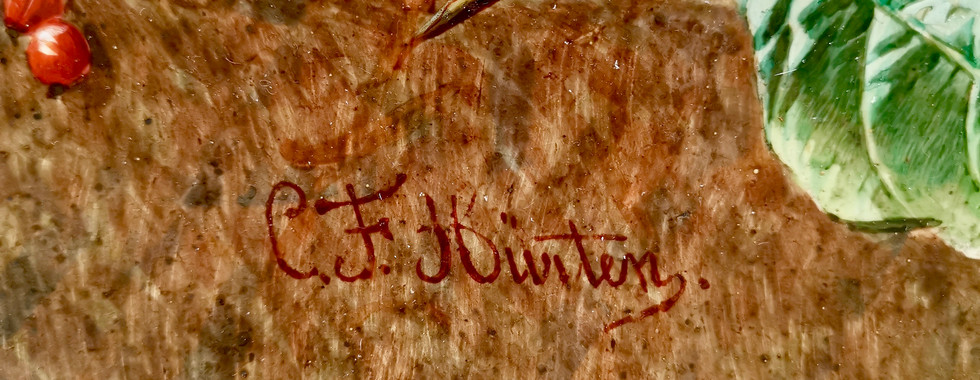 C.F. Hürten.